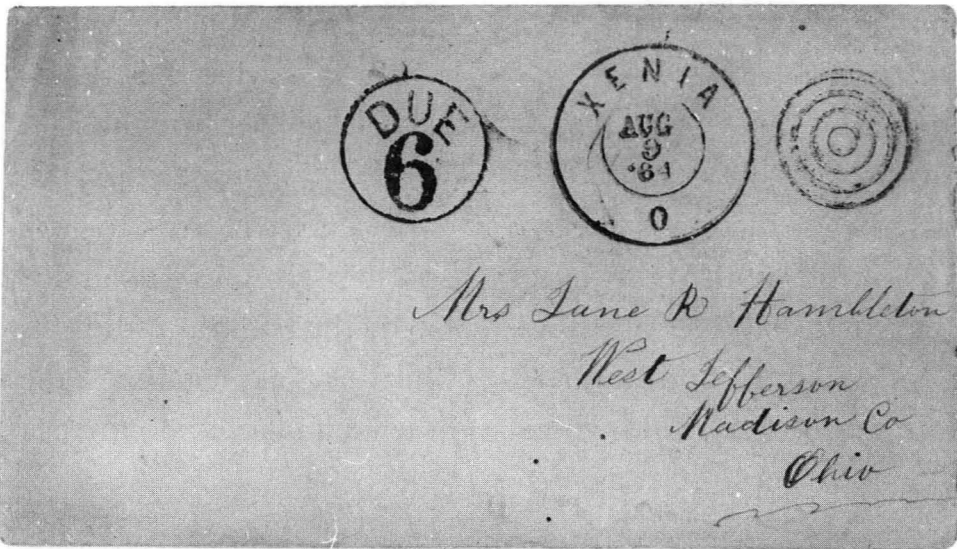 DUE
6
XENIA
AUG
9
'64
O
Mrs Jane R Hambleton
West Jefferson
Madison Co
Ohio